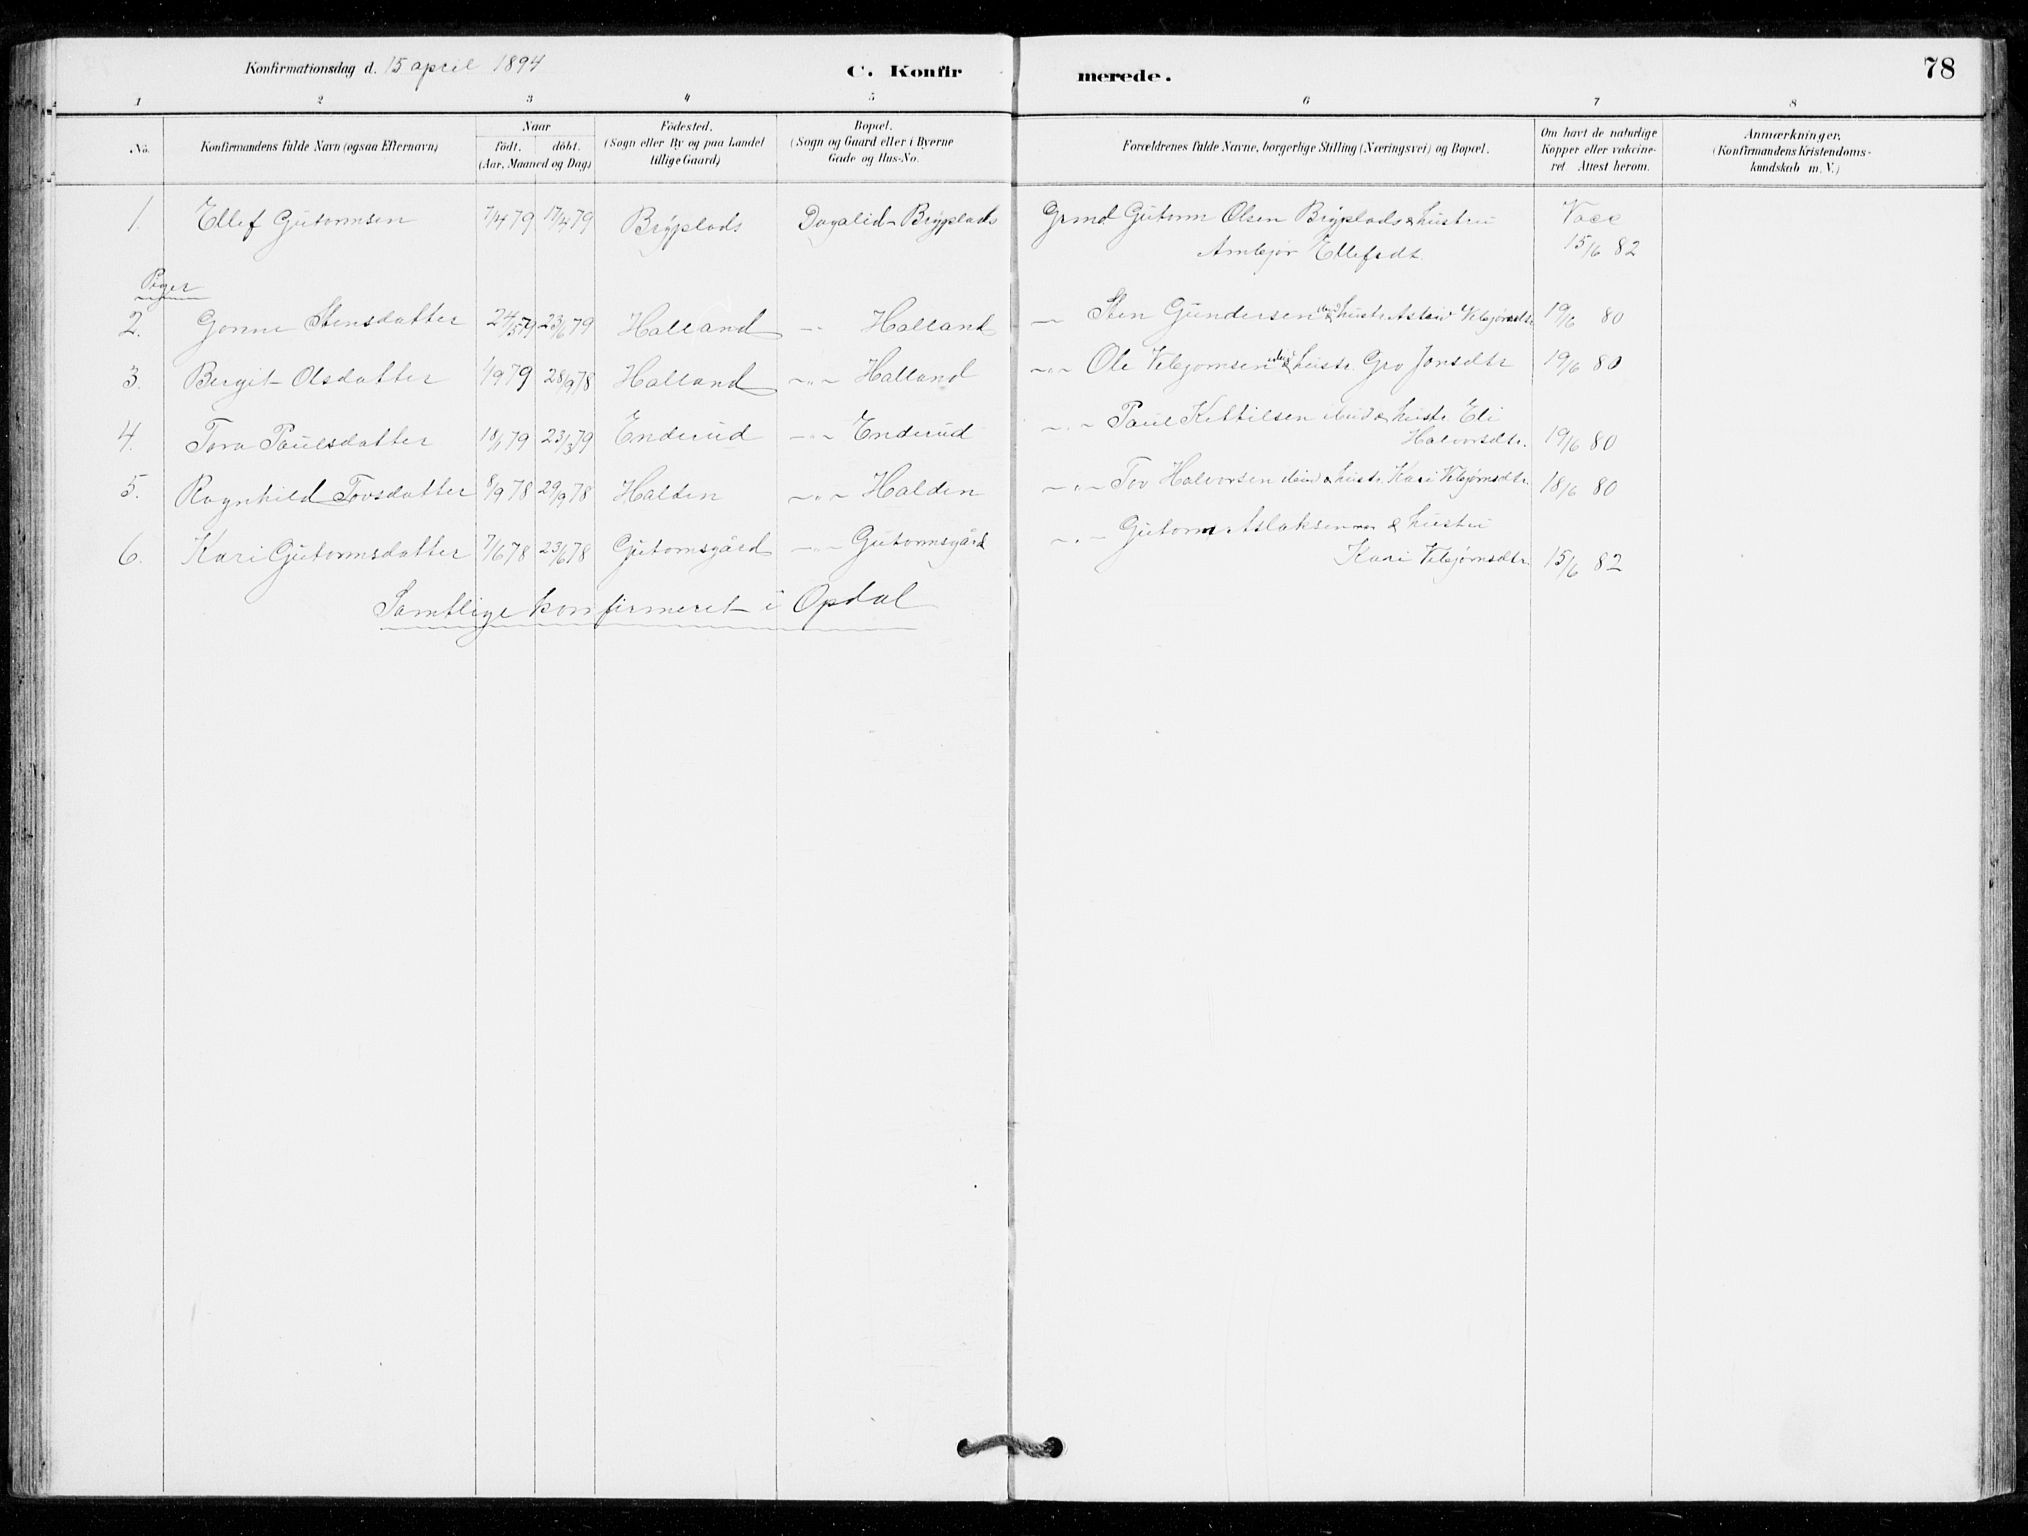 Konfirmationsdag d. 15 april 1894
C. Konfir
merede.
78
1 2 3 4 5 6 7 8
No.
Konfirmandens fulde Navn (ogsaa Efternavn)
Naar
født. døbt.
(Aar, Maaned og Dag)
Fødested.
(Sogn eller By og paa Landet
tillige Gaard)
Bopæl.
(Sogn og Gaard eller i Byerne
Gade og Hus-No.
Forældrenes fulde Navne, borgerlige Stilling (Næringsvei) og Bopæl.
Om havt de naturlige
Kopper eller vakcine-
ret Attest herom.
Anmærkninger.
(Konfirmandens Kristendoms-
kundskab m. V.)
1. Ellef Gutormsen 7/4 79 17/4 79 Brýplads Dagalid Brýplads Grmd Gutorm Olsen Brýplads & hustru Vacc
Ambjør Ellefsdt. 15/6 82
Piger
2. Gonne Stensdatter 24/5 79 23/6 79 Halland -"- Halland - Sten Gundersen ibid & hustr Astrid Vebjørnsdtr 19/6 80
3. Bergit Olsdatter 1/9 79 28/9 78 Halland -"- Halland -"- Ole Vebjornsen ibid & hustr. Gro Jonsdtr 19/6 80
4. Tora Paulsdatter 18/1 79 23/3 79 Enderud -"- Enderud -"- Paul Kittilsen ibid & hustr Eli
Halvorsdtr. 19/6 80
5. Ragnhild Tovsdatter 8/9 78 29/9 78 Halden -"- Halden -"- Tov Halvorsen ibid & hustr. Kari Vebjørnsdtr. 18/6 80
6. Kari Gutormsdatter 7/6 78 23/6 78 Gutomsgård -"- Gutormsgård -"- Gutorm Aslaksen & hustru
Kari Vebjørnsdtr. 15/6 82
Samtlige konfirmeret i Opdal